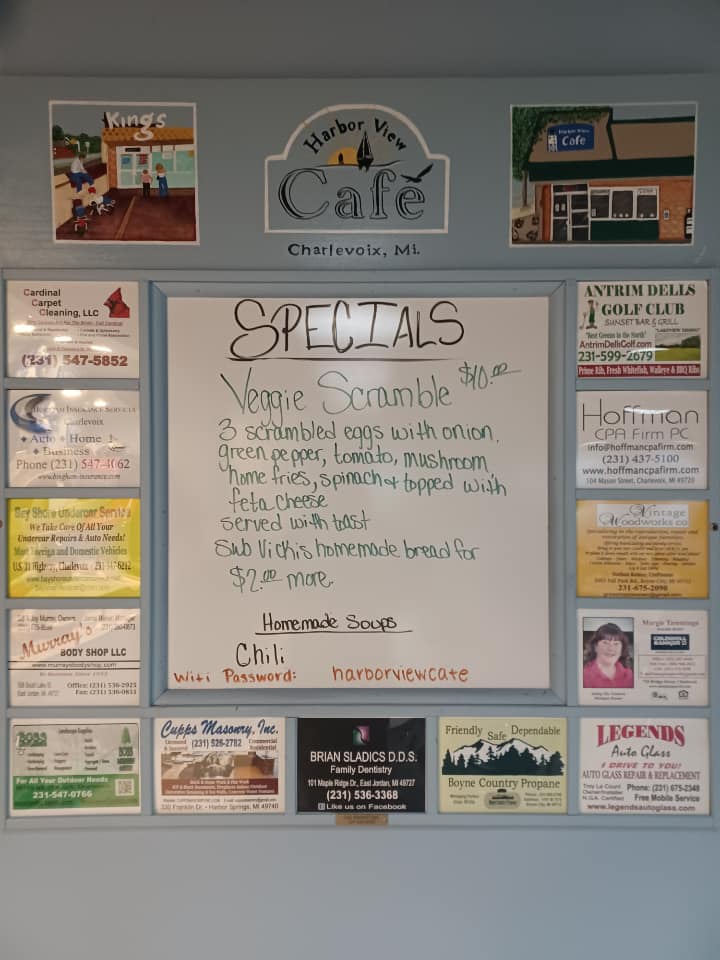 Kings
Harbor View
Café
Charlevoix, Mi.
Harbor View
Cafe
SPECIALS
Veggie Scramble $10.00
3 scrambled eggs with onion,
green pepper, tomato, mushroom
home fries, spinach & topped with
feta cheese
served with toast
Sub Vickis homemade bread for
$2.00 more.
Homemade Soups
Chili
Wifi Password: harborviewcafe
Cardinal
Carpet
Cleaning, LLC
(231) 547-5852
Insurance Services
Charlevoix
Auto Home
Business
Phone (231) 547-4062
www.bingham-insurance.com
Bay Shore Undercar Service
We Take Care Of All Your
Undercar Repairs & Auto Needs!
Most Foreign and Domestic Vehicles
U.S. 31 Highway, Charlevoix - 231-347-6212
Murray's
BODY SHOP LLC
www.murraysbodyshop.com
Office: (231) 536-2925
Fax: (231) 536-0811
Landscape Supplies
For All Your Outdoor Needs
231-547-0766
Cupps Masonry, Inc.
Licensed
& Insured
(231) 526-2782
Commercial
Residential
330 Franklin Dr. • Harbor Springs, MI 49740
BRIAN SLADICS D.D.S.
Family Dentistry
101 Maple Ridge Dr., East Jordan, MI 49727
(231) 536-3368
Like us on Facebook
Friendly Safe Dependable
Boyne Country Propane
ANTRIM DELLS
GOLF CLUB
SUNSET BAR & GRILL
"Best Greens in the North"
AntrimDellsGolf.com
231-599-2679
Prime Rib, Fresh Whitefish, Walleye & BBQ Ribs
Hoffman
CPA Firm PC
info@hoffmancpafirm.com
(231) 437-5100
www.hoffmancpafirm.com
104 Mason Street, Charlevoix, MI 49720
Vintage
Woodworks co
231-675-2090
Margie Tennings
COLDWELL
BANKER
LEGENDS
Auto Glass
I DRIVE TO YOU!
AUTO GLASS REPAIR & REPLACEMENT
Troy La Count
Owner/Installer
N.G.A. Certified
Phone: (231) 675-2348
Free Mobile Service
www.legendsautoglass.com